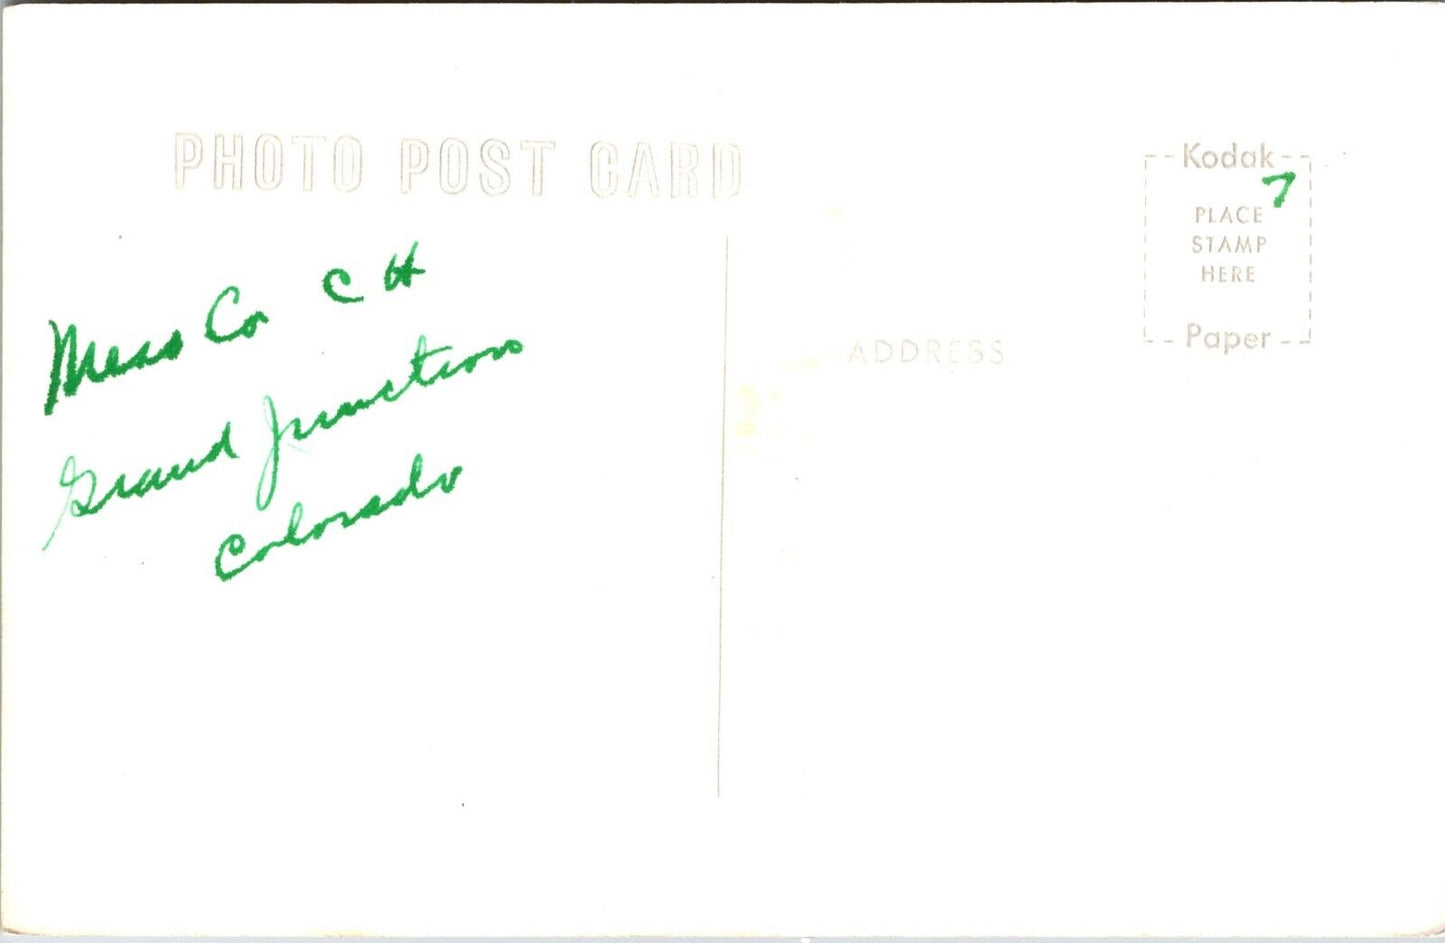 PHOTO POST CARD
Kodak
7
PLACE
STAMP
HERE
Paper
ADDRESS
Mesa Co C H
Grand Junction
Colorado